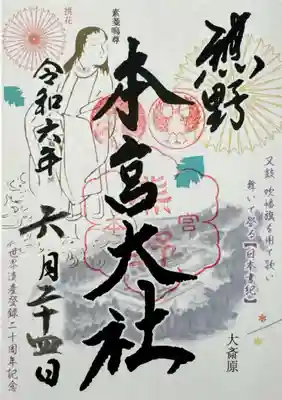 熊野
本宮大社
令和六年
六月二十四日
素戔嗚尊
挑花
又鼓 吹幡旗を用て歌い
舞いて祭る【日本書紀】
大斎原
世界遺産登録二十周年記念